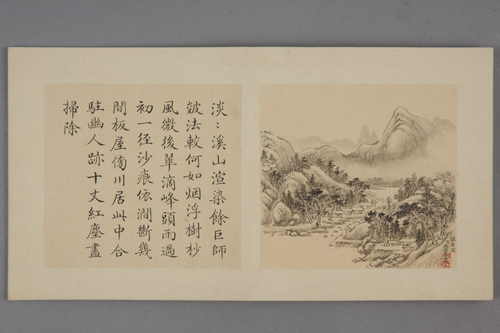 淡〻溪山渲染餘巨師
皴法較何如烟浮樹杪
風微後翠滴峰頭雨過
初一径沙痕依澗斷幾
間板屋傍川居此中合
駐幽人跡十丈紅塵盡
掃除